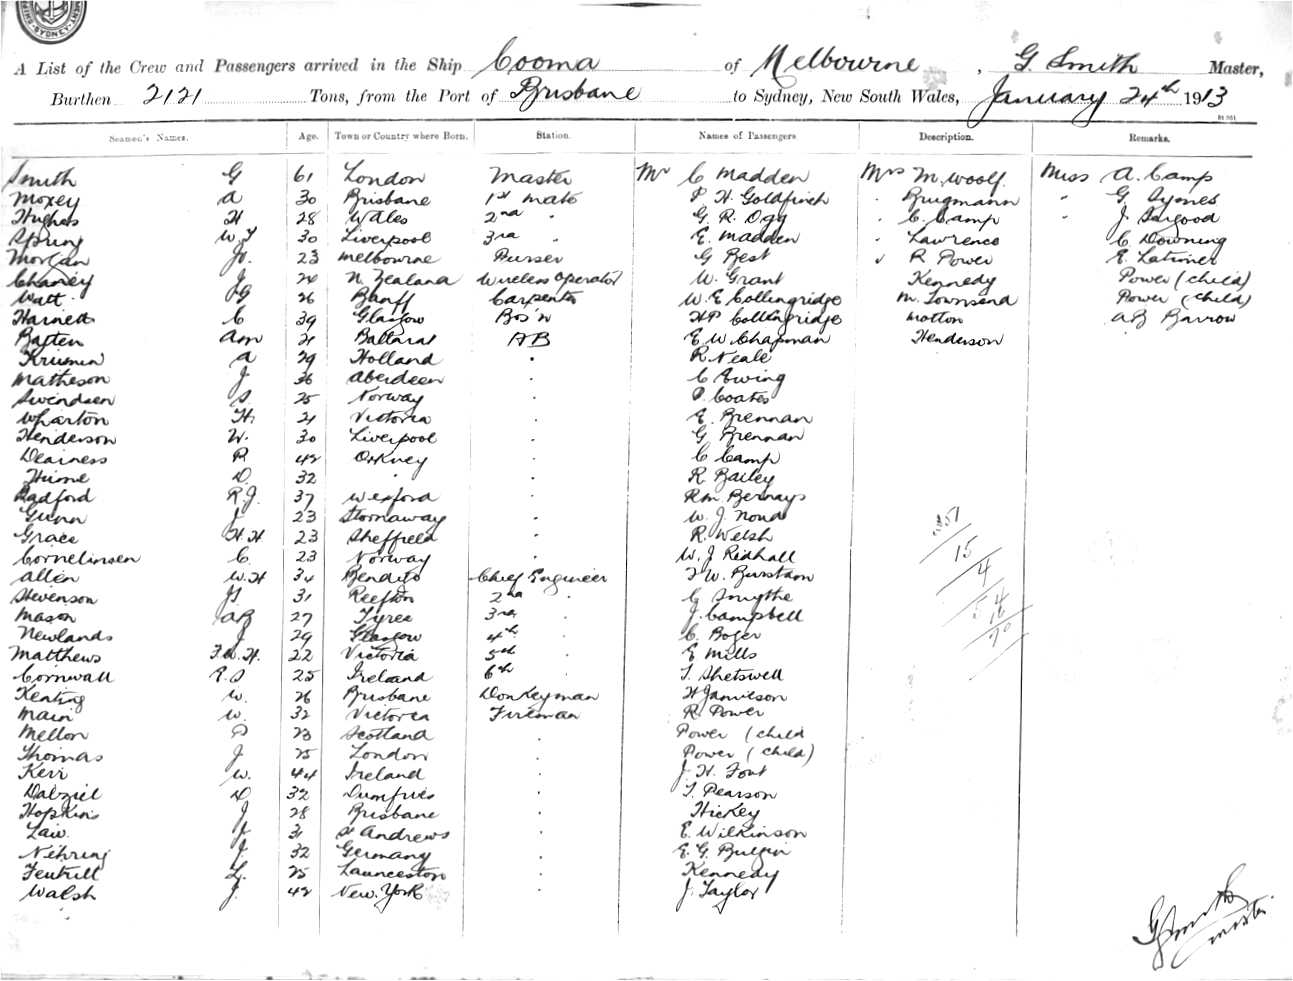 SYDNEY
A List of the Crew and Passengers arrived in the Ship Cooma of Melbourne, G. Smith Master,
Burthen 2121 Tons, from the Port of Brisbane to Sydney, New South Wales, January 24th 1913
Seamen's Names. Age. Town or Country where Born. Station. Names of Passengers Description. Remarks.
Smith G 61 London Master Mr C Madden Mrs M. Woolf. Miss A. Camp
Moxey A 30 Brisbane 1st Mate P H. Goldfinch " Brugmann " G. Symes
Hughes H 28 Wales 2nd " G. R. Ogg " C. Camp " J. Sargood
Spring W. J 30 Liverpool 3rd " E. Madden " Lawrence C Downing
Morgan Jr. 23 Melbourne Purser G Best " R Power E. Latimer
Chaney J. 20 N. Zealand Wireless Operator W. Grant Kennedy Power (child)
Watt. 26 Banff Carpenter W. E Collingridge M. Townsend Power (child)
Harned C 39 Glasgow Bos'n H P Collingridge Motton AB Barrow
Baxten AM 21 Ballarat AB E W Chapman Henderson
A 29 Holland " R Neale
Matheson J. 36 Aberdeen " C Ewing
Swendsen S 25 Norway " P. Coates
Wharton H. 21 Victoria " E. Brennan
Henderson W. 30 Liverpool " G Brennan
Deainess R 42 Orkney " C Camp
Hume D. 32 " " R Bailey
Radford R. J. 37 Wexford " R M. Bernays
Gunn J 23 Stornaway " W. J. Nond
Grace H. H 23 Sheffield " R. Welsh 51
Cornelinsen C. 23 Norway " W. J Ridhall 15
Allen W. H 34 Bendigo Chief Engineer F W. Burstam 4
Stevenson 31 Reefton 2nd " C Smythe 54
Mason AB 27 Tyree 3rd " J. Campbell 16
Newlands J 29 Glasgow 4th " C. Boger 70
Matthews F. W. H. 22 Victoria 5th " E Mills
Cornwall R. S 25 Ireland 6th " T. Shetswell
Keating W. 26 Brisbane Donkeyman H Jamieson
Main W. 32 Victoria Fireman R. Power
Mellon P 23 Scotland " Power (child
Thomas J 25 London " Power (child)
Kerr W. 44 Ireland " J. H. Font
Dalziel D 32 Dumfries " T. Pearson
Hopkins J 28 Brisbane " Hickey
Law. J 31 St Andrews " E. Wilkinson
Nehring J. 32 Germany " E. G. Bulgin
L. 25 Launceston " Kennedy
Walsh J. 42 New York " J. Taylor
G Smith
Master